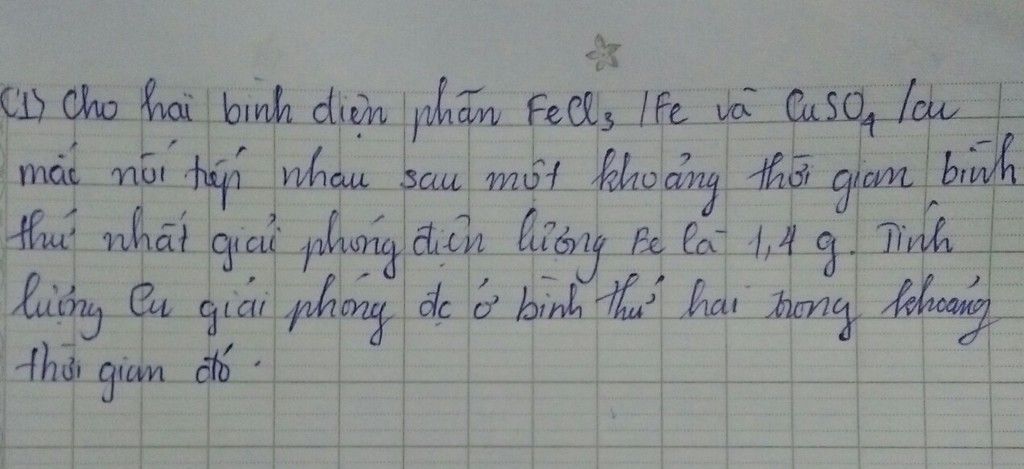 C1) Cho hai bình điện phân FeCl3 /Fe và CuSO4 /cu
mắc nối tiếp nhau sau một khoảng thời gian bình
thứ nhất giải phóng điện lượng Fe là 1,4 g. Tính
lượng Cu giải phóng đc ở bình thứ hai trong khoảng
thời gian đó.